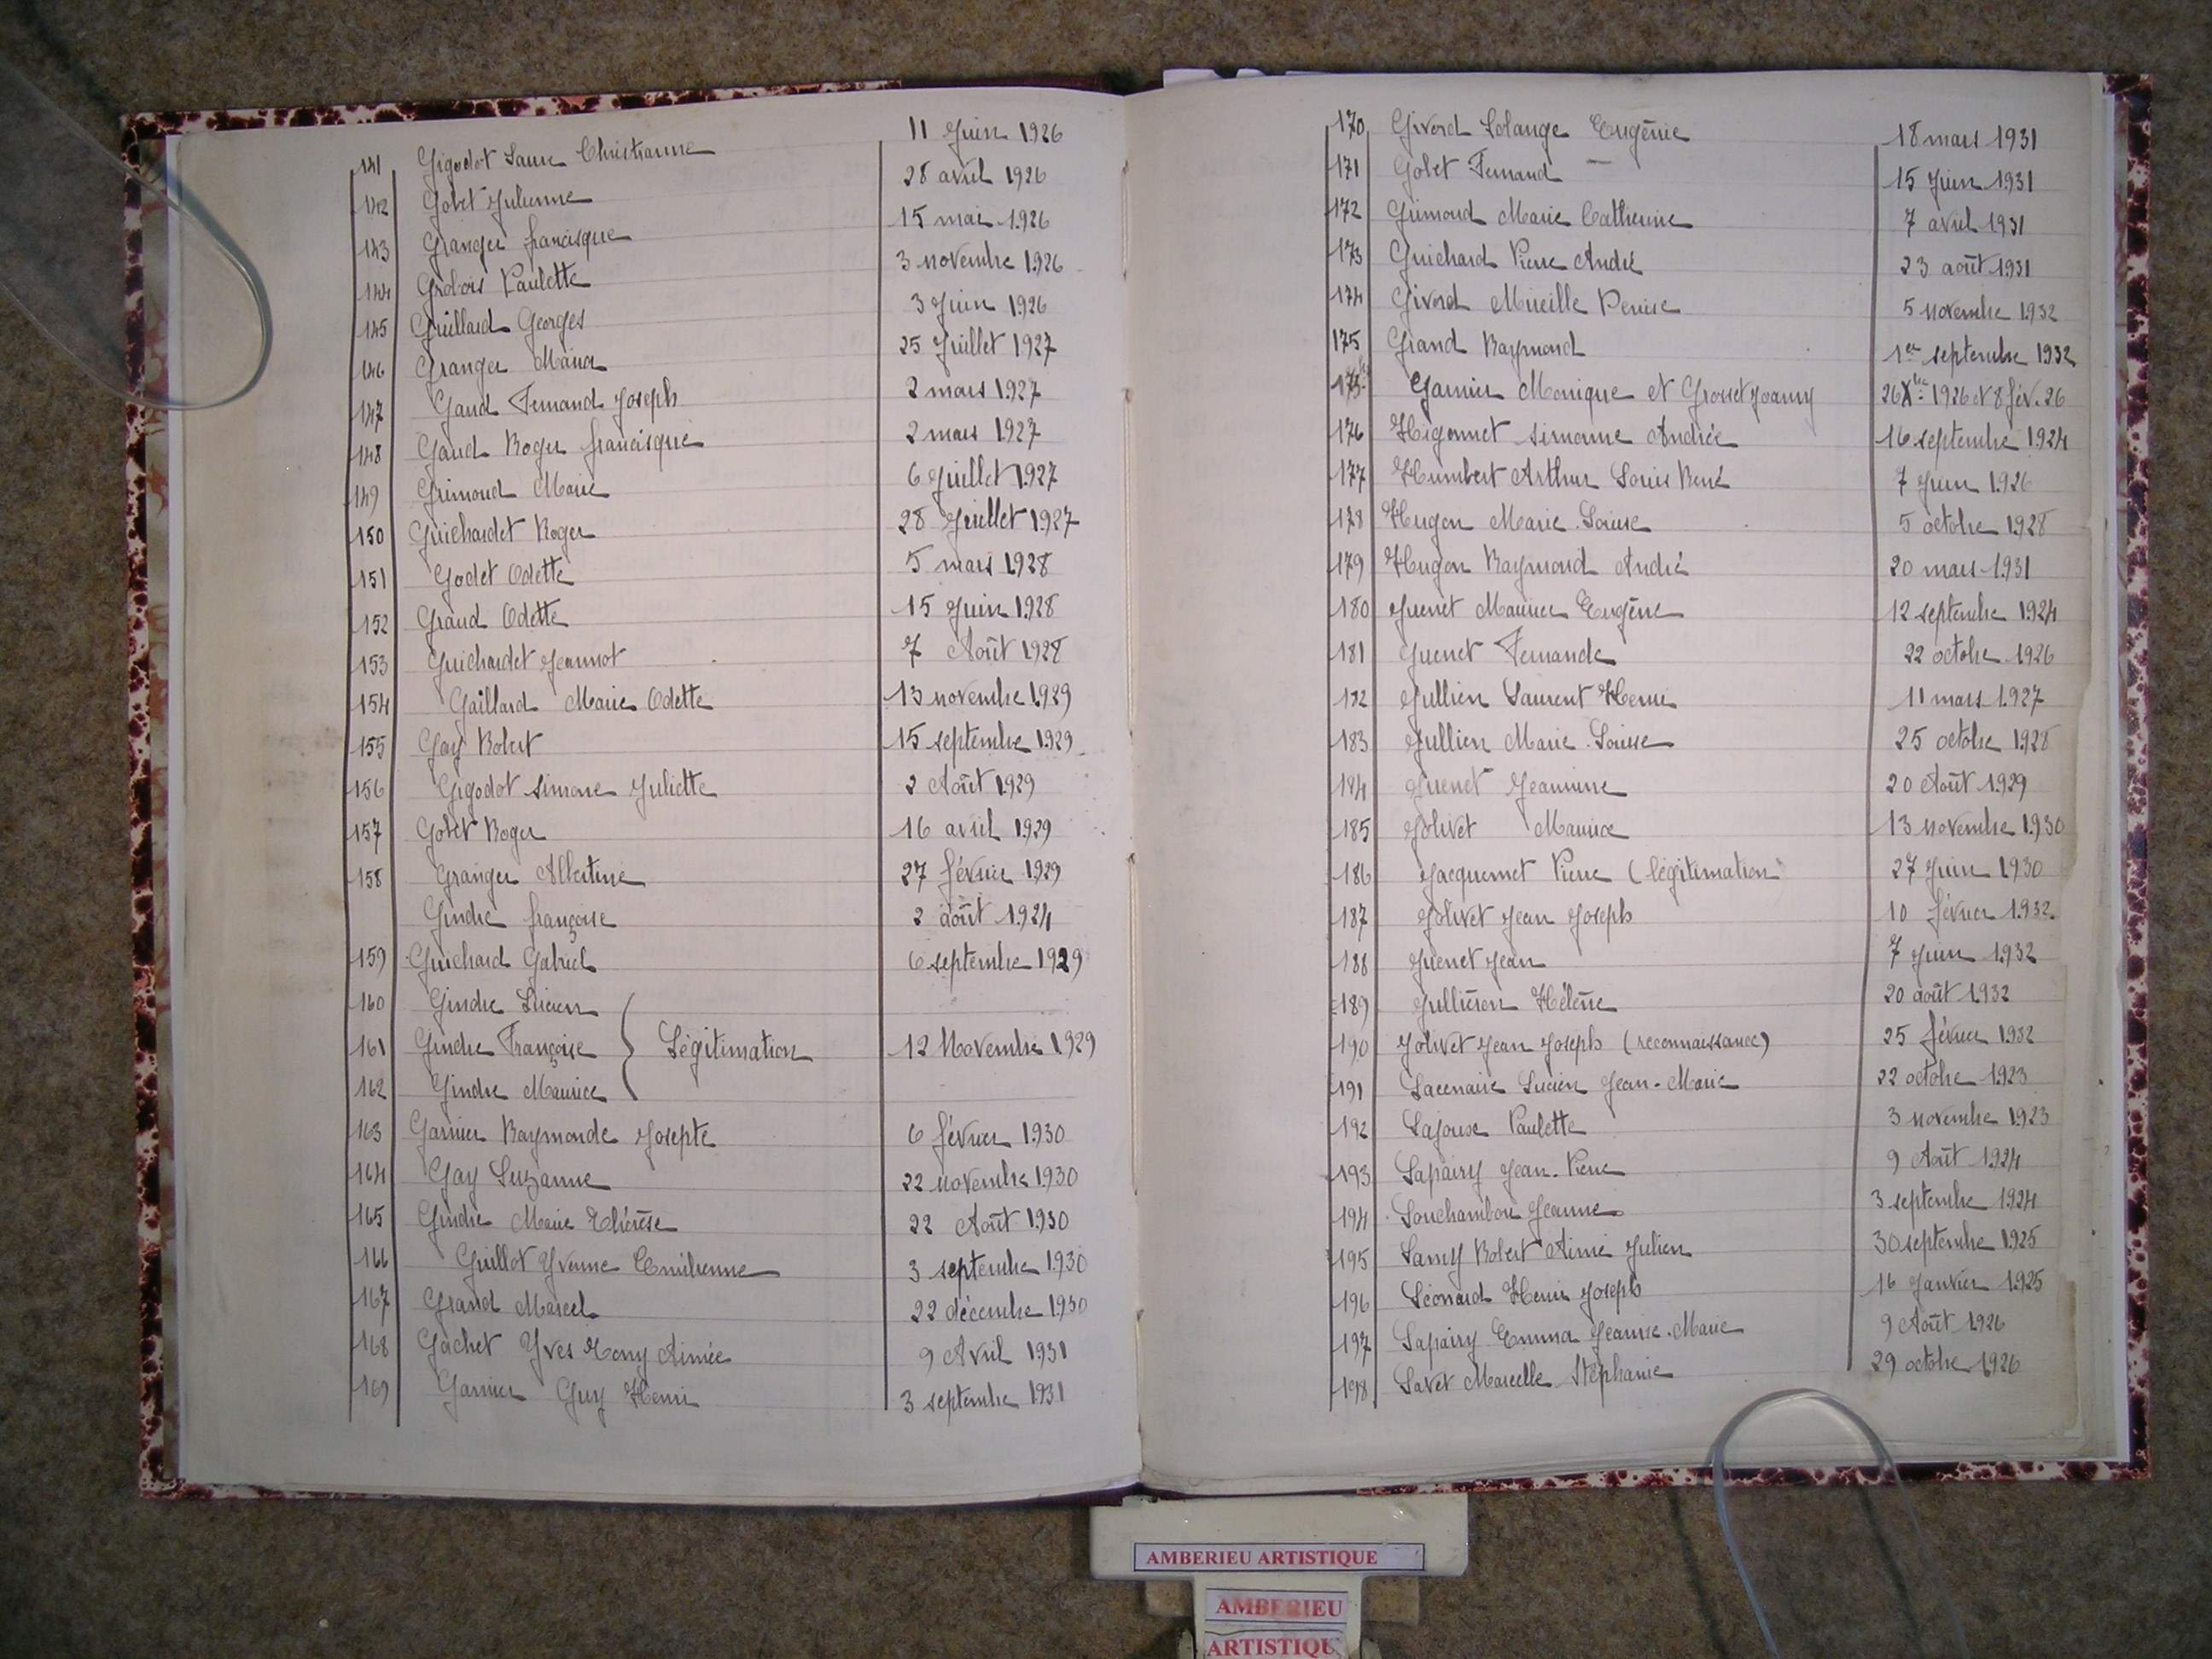 141 Gigodot Laure Christianne 11 Juin 1926
142 Gobet Julienne 28 avril 1926
143 Granger francisque 15 mai 1926
144 Grobois Paulette 3 novembre 1926
145 Guillard Georges 3 Juin 1926
146 Granger Maria 25 Juillet 1927
147 Gaud Fernand Joseph 2 mars 1927
148 Gaud Roger francisque 2 mars 1927
149 Grimaud Marie 6 Juillet 1927
150 Guichardet Roger 28 Juillet 1927
151 Godet Odette 5 mars 1928
152 Graud Odette 15 Juin 1928
153 Guichardet Jeannot 7 Août 1928
154 Gaillard Marie Odette 13 novembre 1929
155 Gay Robert 15 septembre 1929
156 Gigodot Simone Juliette 2 Août 1929
157 Gobet Roger 16 avril 1929
158 Granger Albertine 27 février 1929
Gindre françoise 2 août 1924
159 Guichard Gabriel 6 septembre 1929
160 Gindre Lucien
161 Gindre Françoise Légitimation 12 Novembre 1929
162 Gindre Maurice
163 Garnier Raymonde Josepte 6 février 1930
164 Gay Suzanne 22 novembre 1930
165 Gindre Marie Thérèse 22 Août 1930
166 Guillot Yvonne Emilienne 3 septembre 1930
167 Grand Marcel 22 décembre 1930
168 Gachet Yves Rony Aimée 9 Avril 1931
169 Garnier Guy Henri 3 septembre 1931
170 Givord Solange Eugénie 18 mars 1931
171 Gobet Fernand 15 Juin 1931
172 Grimaud Marie Catherine 7 avril 1931
173 Guichard Pierre André 23 août 1931
174 Givord Mireille Denise 5 novembre 1932
175 Grand Raymond 1er septembre 1932
175bis Garnier Monique et Grosset Joanny 26 Xbre 1926 et 8 fév. 26
176 Higonnet Simonne Andrée 16 septembre 1924
177 Humbert Arthur Louis René 7 Juin 1926
178 Hugon Marie-Louise 5 octobre 1928
179 Hugon Raymond André 20 mars 1931
180 Juenet Maurice Eugène 12 septembre 1924
181 Juenet Fernande 22 octobre 1926
182 Jullien Laurent Henri 11 mars 1927
183 Jullien Marie-Louise 25 octobre 1928
184 Juenet Jeannine 20 Août 1929
185 Jolivet Maurice 13 novembre 1930
186 Jacquemet Pierre (légitimation) 27 Juin 1930
187 Jolivet Jean Joseph 10 février 1932
188 Juenet Jean 7 Juin 1932
189 Julliéron Hélène 20 août 1932
190 Jolivet Jean Joseph (reconnaissance) 25 février 1932
191 Lacenaire Lucien Jean-Marie 22 octobre 1923
192 Lajoux Paulette 3 novembre 1923
193 Lapairy Jean-Pierre 9 Août 1924
194 Souchambon Jeanne 3 septembre 1924
195 Lamy Robert Aimé Julien 30 septembre 1925
196 Léonard Henri Joseph 16 Janvier 1925
197 Lapairy Emma Jeanne-Marie 9 Août 1926
198 Lavet Marcelle Stéphanie 29 octobre 1926
AMBERIEU ARTISTIQUE
AMBERIEU
ARTISTIQUE